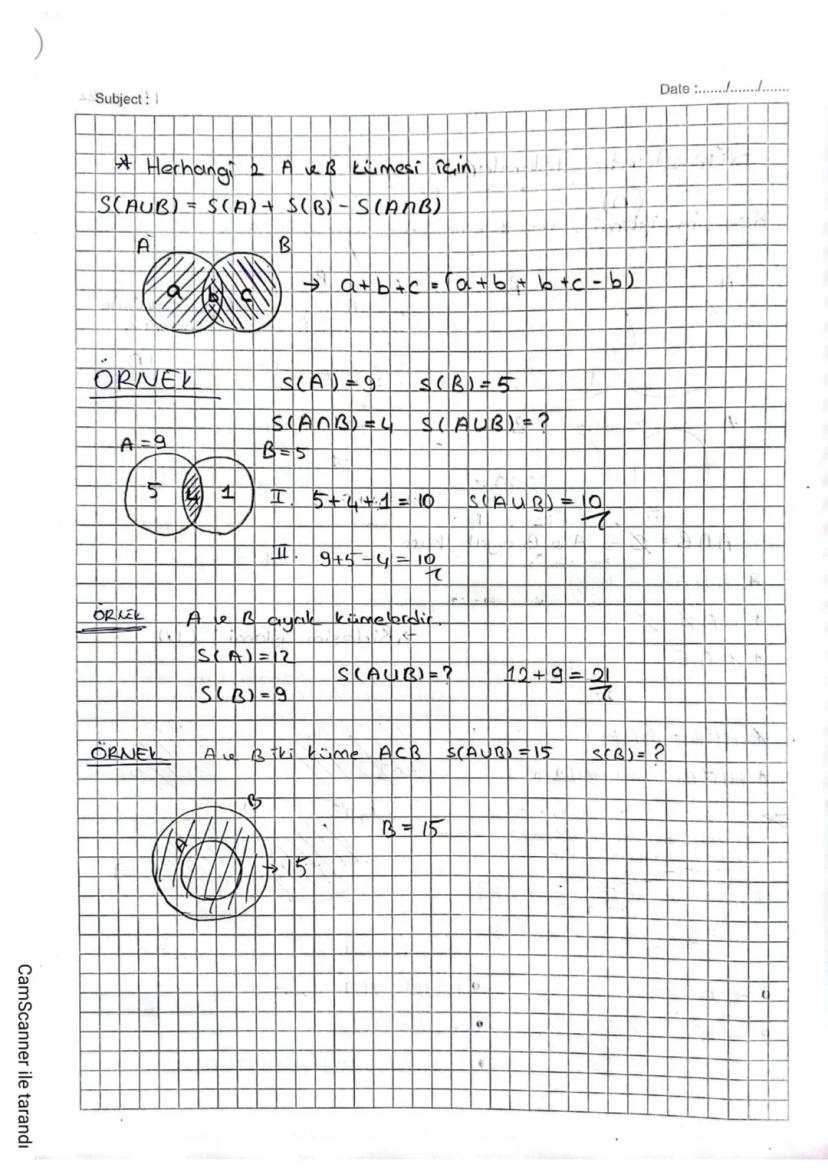 Subject :
Date :......./......./.......
* Herhangi 2 A ve B kümesi için.
S(A∪B) = S(A) + S(B) - S(A∩B)
A B
a b c → a+b+c = (a+b + b+c-b)
ÖRNEK S(A)=9 S(B)=5
S(A∩B)=4 S(A∪B)=?
A=9 B=5
5 4 1 I. 5+4+1=10 S(A∪B)=10
II. 9+5-4=10
ÖRNEK A ve B ayrık kümelerdir.
S(A)=12
S(A∪B)=? 12+9=21
S(B)=9
ÖRNEK A ve B iki küme A⊂B S(A∪B)=15 S(B)=?
B
B=15
A
→ 15
CamScanner ile tarandı